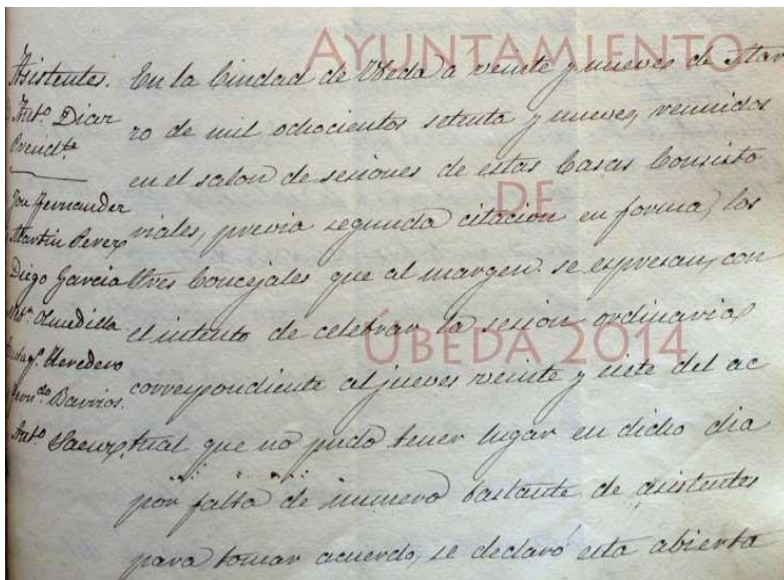 AYUNTAMIENTO
DE
ÚBEDA 2014
Asistentes.
Ant.º Diaz
Presid.te
Fernandez
Martin Perez
Diego Garcia
Olmedilla
Heredero
Barrios
Ant.º Saenz
En la Ciudad de Ubeda á veinte y nueve de Mar
zo de mil ochocientos setenta y nueve, reunidos
en el salon de sesiones de estas Casas Consisto
riales, previa segunda citacion en forma, los
Sres Concejales que al margen se espresan, con
el intento de celebrar la sesion ordinaria
correspondiente al jueves veinte y siete del ac
tual que no pudo tener lugar en dicho dia
por falta de numero bastante de asistentes
para tomar acuerdo, se declaró esta abierta